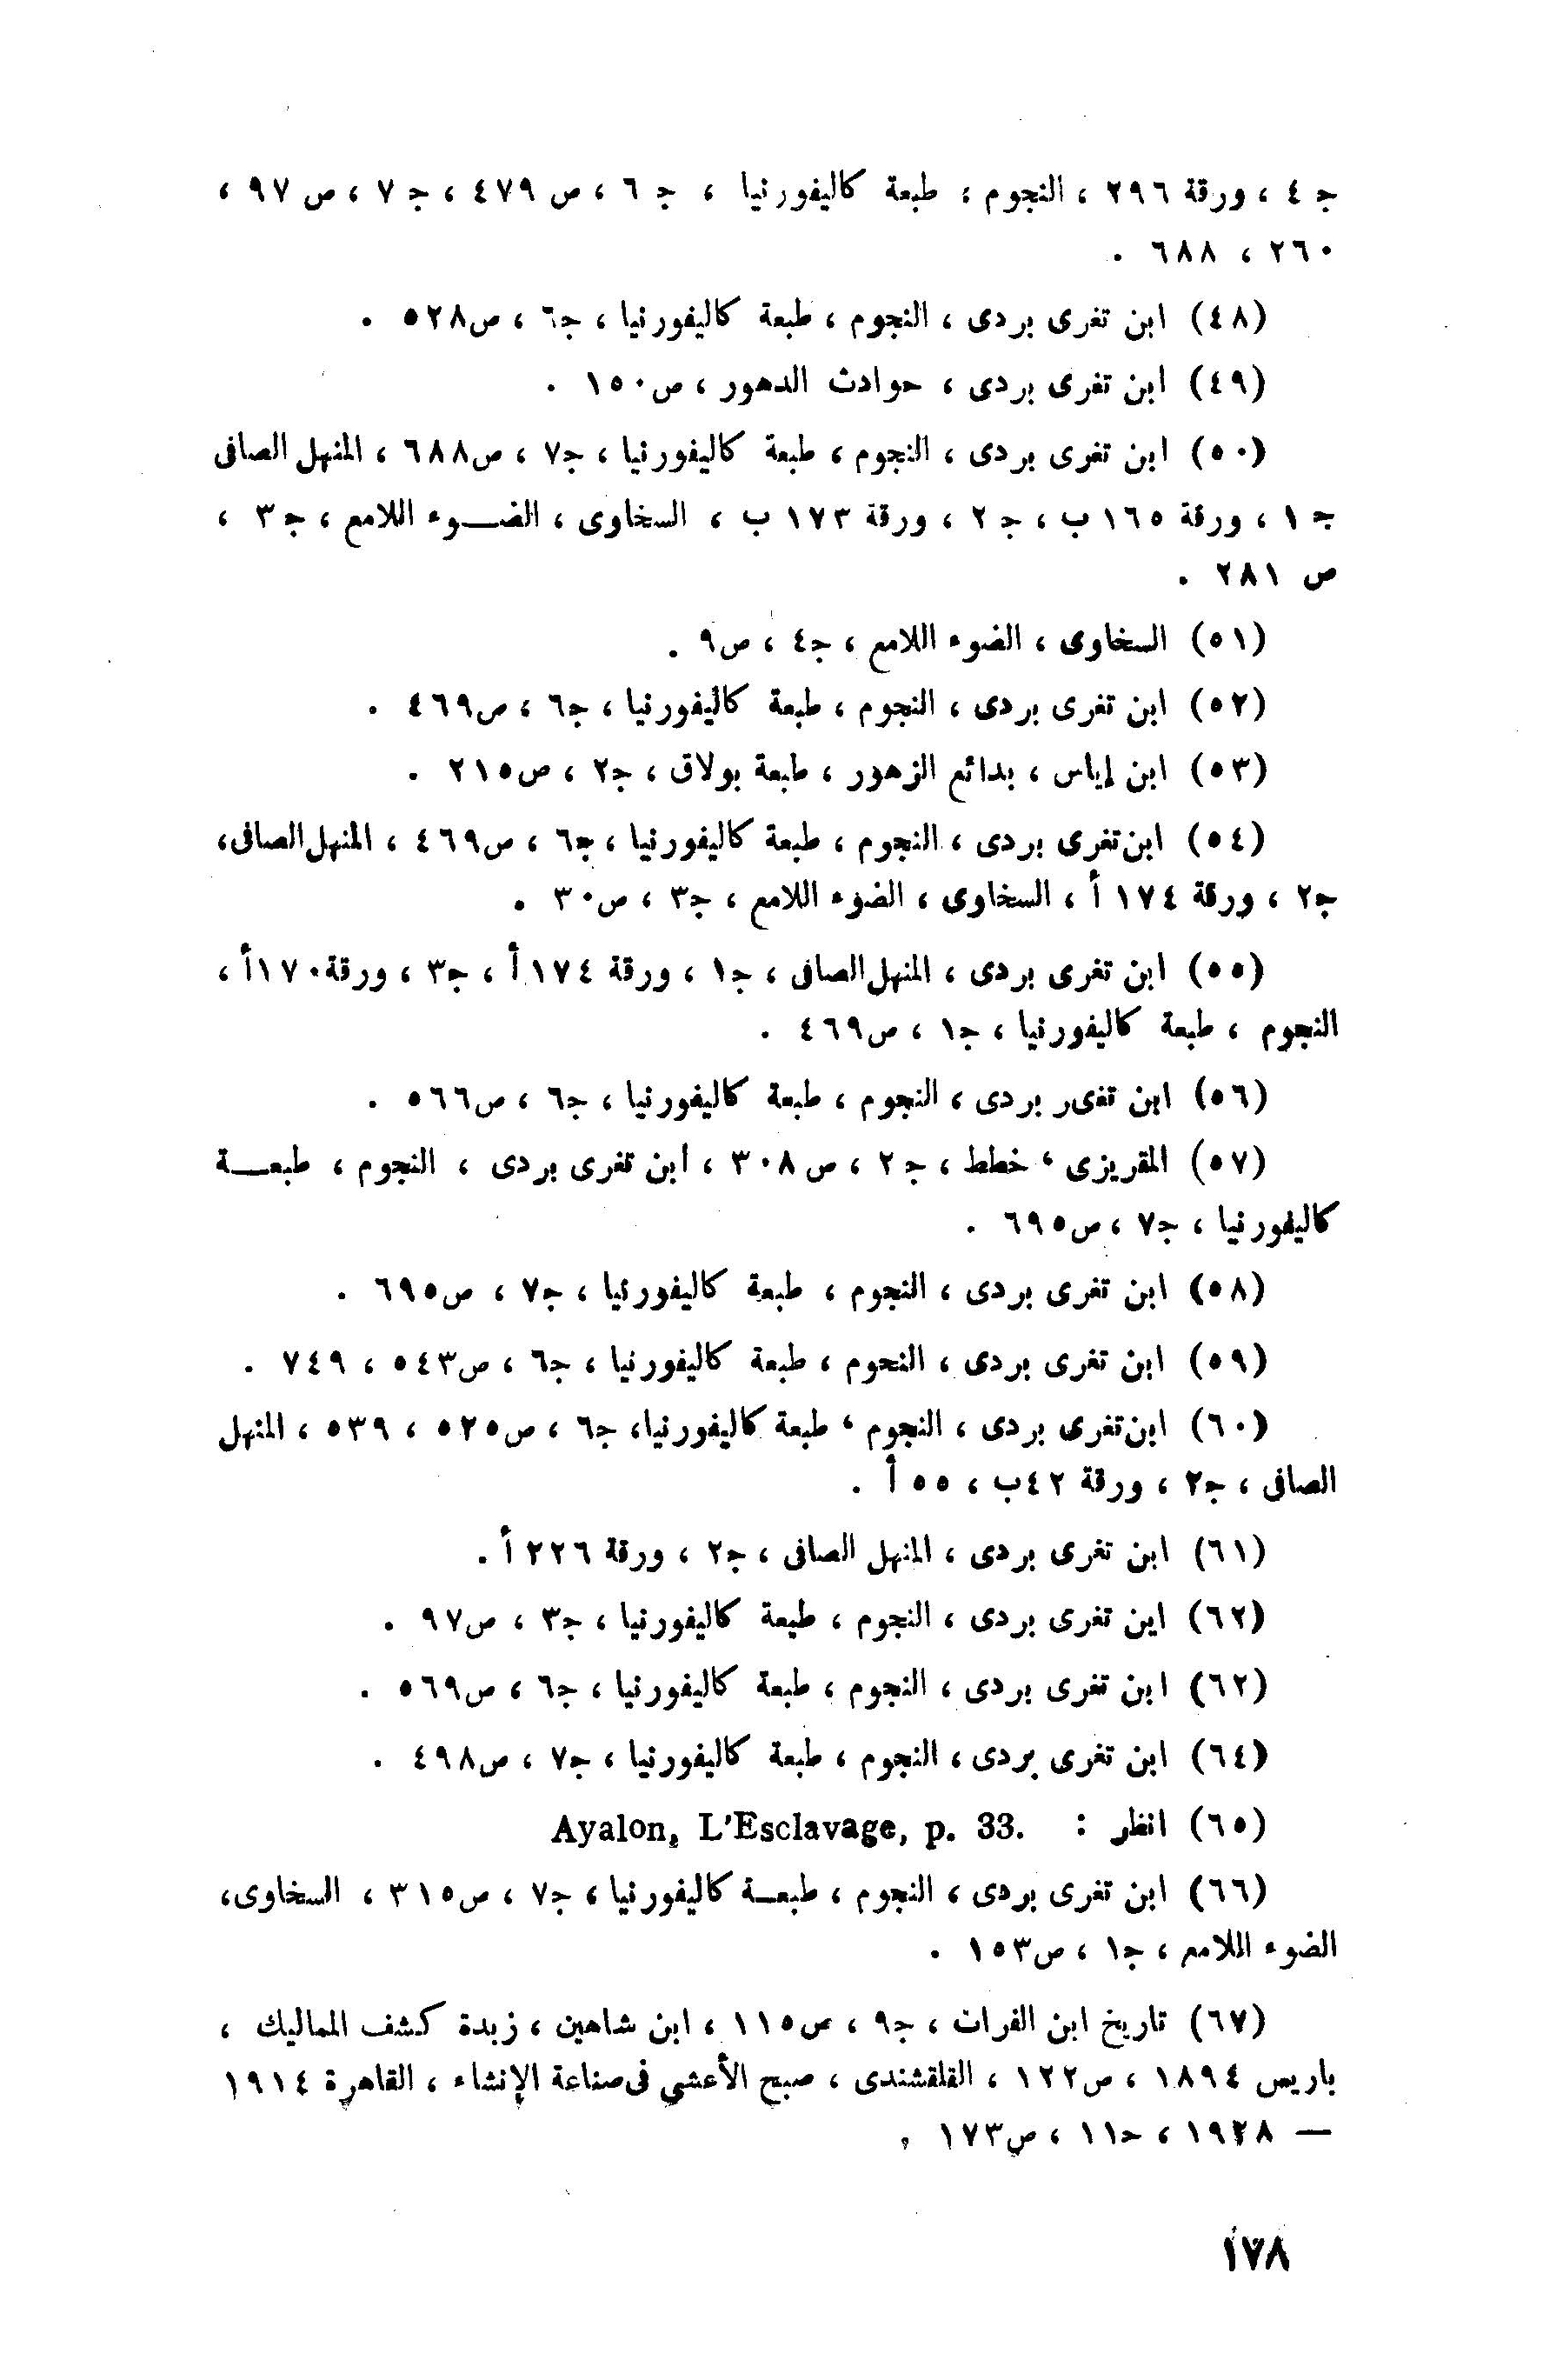 ج ٤ ، ورقة ٢٩٦ ، النجوم ؛ طبعة كاليفورنيا ، ج ٦ ، ص ٤٧٩ ، ج ٧ ، ص ٩٧ ،
٢٦٠ ، ٦٨٨ .
(٤٨) ابن تغرى بردى ، النجوم ، طبعة كاليفورنيا ، ج٦ ، ص٥٢٨ .
(٤٩) ابن تغرى بردى ، حوادث الدهور ، ص١٥٠ .
(٥٠) ابن تغرى بردى ، النجوم ، طبعة كاليفورنيا ، ج٧ ، ص٦٨٨ ، المنهل الصافى
ج ١ ، ورقة ١٦٥ ب ، ج ٢ ، ورقة ١٧٣ ب ، السخاوى ، الضـــوء اللامع ، ج ٣ ،
ص ٢٨١ .
(٥١) السخاوى ، الضوء اللامع ، ج٤ ، ص٩ .
(٥٢) ابن تغرى بردى ، النجوم ، طبعة كاليفورنيا ، ج٦ ، ص٤٦٩ .
(٥٣) ابن إياس ، بدائع الزهور ، طبعة بولاق ، ج٢ ، ص٢١٥ .
(٥٤) ابن تغرى بردى ، النجوم ، طبعة كاليفورنيا ، ج٦ ، ص٤٦٩ ، المنهل الصافى،
ج٢ ، ورقة ١٧٤ أ ، السخاوى ، الضوء اللامع ، ج٣ ، ص٣٠ .
(٥٥) ابن تغرى بردى ، المنهل الصافى ، ج١ ، ورقة ١٧٤ أ ، ج٣ ، ورقة ١٧٠أ ،
النجوم ، طبعة كاليفورنيا ، ج١ ، ص٤٦٩ .
(٥٦) ابن تغىر بردى ، النجوم ، طبعة كاليفورنيا ، ج٦ ، ص٥٦٦ .
(٥٧) المقريزى ، خطط ، ج ٢ ، ص ٣٠٨ ، أبن تغرى بردى ، النجوم ، طبعـــة
كاليفورنيا ، ج٧ ، ص٦٩٥ .
(٥٨) ابن تغرى بردى ، النجوم ، طبعة كاليفورنيا ، ج٧ ، ص٦٩٥ .
(٥٩) ابن تغرى بردى ، النحوم ، طبعة كاليفورنيا ، ج٦ ، ص٥٤٣ ، ٧٤٩ .
(٦٠) ابن تغرى بردى ، النجوم ، طبعة كاليفورنيا، ج٦ ، ص٥٢٥ ، ٥٣٩ ، المنهل
الصافى ، ج٢ ، ورقة ٤٢ب ، ٥٥ أ .
(٦١) ابن تغرى بردى ، المنهل الصافى ، ج٢ ، ورقة ٢٢٦ أ .
(٦٢) اين تغرى بردى ، النجوم ، طبعة كاليفورنيا ، ج٣ ، ص٩٧ .
(٦٢) ابن تغرى بردى ، النجوم ، طبعة كاليفورنيا ، ج٦ ، ص٥٦٩ .
(٦٤) ابن تغرى بردى ، النجوم ، طبعة كاليفورنيا ، ج٧ ، ص٤٩٨ .
(٦٥) انظر : Ayalon, L'Esclavage, p. 33.
(٦٦) ابن تغرى بردى ، النجوم ، طبعـة كاليفورنيا ، ج٧ ، ص٣١٥ ، السخاوى،
الضوء اللامع ، ج١ ، ص١٥٣ .
(٦٧) تاريخ ابن الفرات ، ج٩ ، ص١١٥ ، ابن شاهين ، زبدة كشف المماليك ،
باريس ١٨٩٤ ، ص١٢٢ ، القلقشندى ، صبح الأعشي فى صناعة الإنشاء ، القاهرة ١٩١٤
— ١٩٢٨ ، ح١١ ، ص١٧٣ .
١٧٨